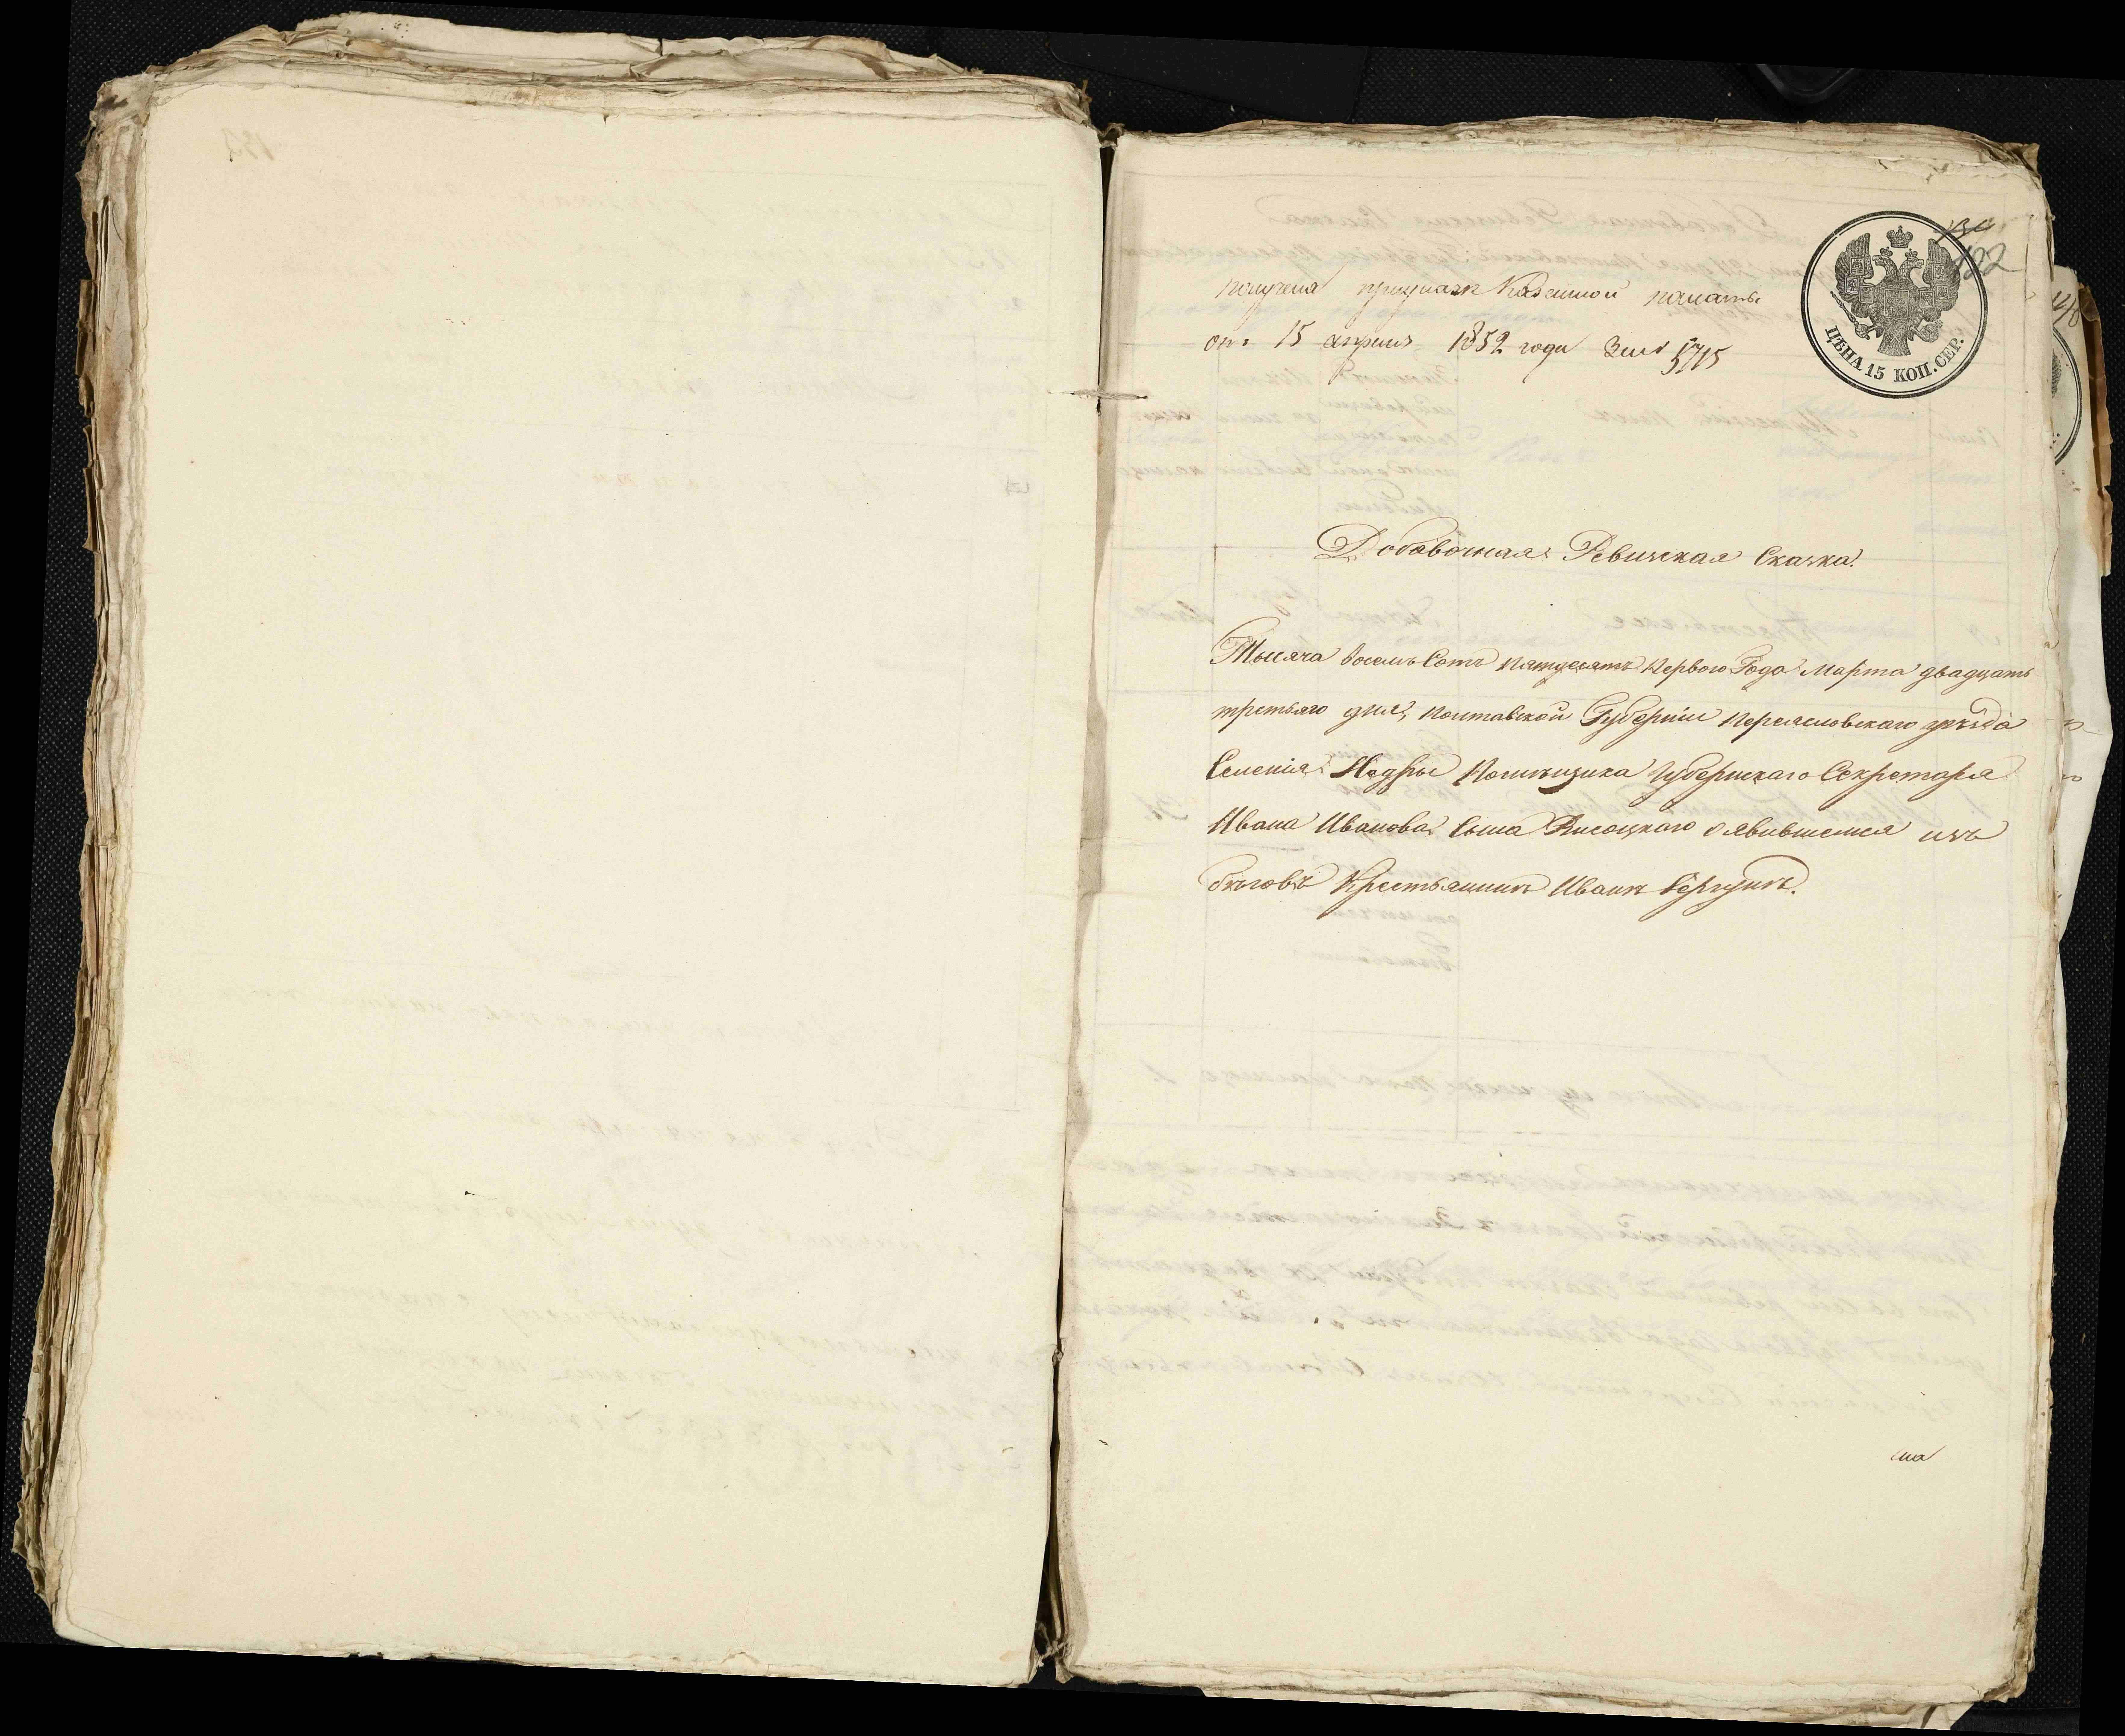 132
получена при указѣ Казенной палаты
отъ 15 апрѣля 1852 года за № 5715
ЦѢНА 15 КОП. СЕР.
Добавочная Ревизская Сказка.
Тысяча восемь Сотъ пятдесятъ первого Года Марта двадцать
третьяго дня, Полтавской Губерніи Переясловскаго уѣзда
Селенія Недры Помѣщика Губернскаго Секретаря
Ивана Иванова Сына Высоцкаго о явившемся изъ
бѣговъ Крестьянинѣ Иванѣ